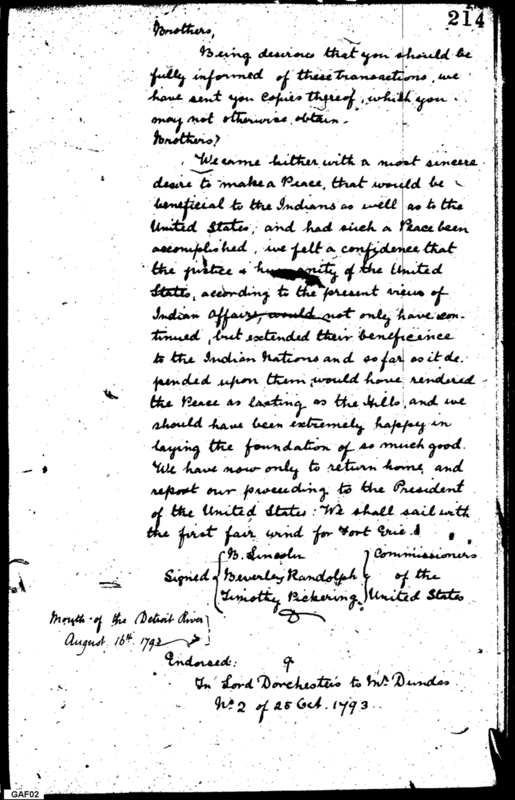 214
Brothers,
Being desirous that you should be
fully informed of these transactions, we
have sent you Copies thereof, which you
may not otherwise obtain.
Brothers,
We came hither with a most sincere
desire to make a Peace, that would be
beneficial to the Indians as well as to the
United States; and had such a Peace been
accomplished, we felt a confidence that
the justice & humanity of the United
States, according to the present views of
Indian Affairs, would not only have con-
tinued, but extended their beneficence
to the Indian Nations and so far as it de-
pended upon them would have rendered
the Peace as lasting as the Hills, and we
should have been extremely happy in
laying the foundation of so much good.
We have now only to return home, and
report our proceeding to the President
of the United States: We shall sail with
the first fair wind for Fort Erie.
B. Lincoln } Commissioners
Signed { Beverley Randolph } of the
Timothy Pickering } United States
Mouth of the Detroit River }
August 16th 1793
Endorsed:
In Lord Dorchester's to Mr Dundas
No 2 of 25 Oct. 1793.
GAF02